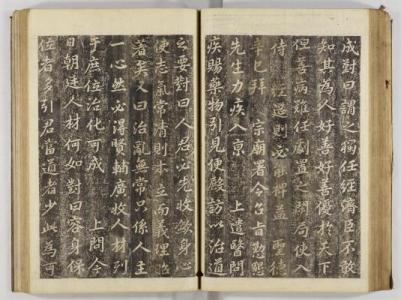 成對曰謂之獨任經濟臣不敢
知其爲人好善好善優於天下
但善病難任劇置之閑局使入
侍經
辛巳拜 宗廟署令召旨懃熙
先生力疾入京 上遣醫問
疾賜藥物引見便殿訪以治道
云要對曰人君必先收歛身心
使志氣常清則本立而義理昭
著矣又曰治亂無常只係人主
一心然必得賢輔廣收人材列
于庶位治化可成 上問今
日朝廷人材何如對曰容身保
位者多引君當道者少此爲可